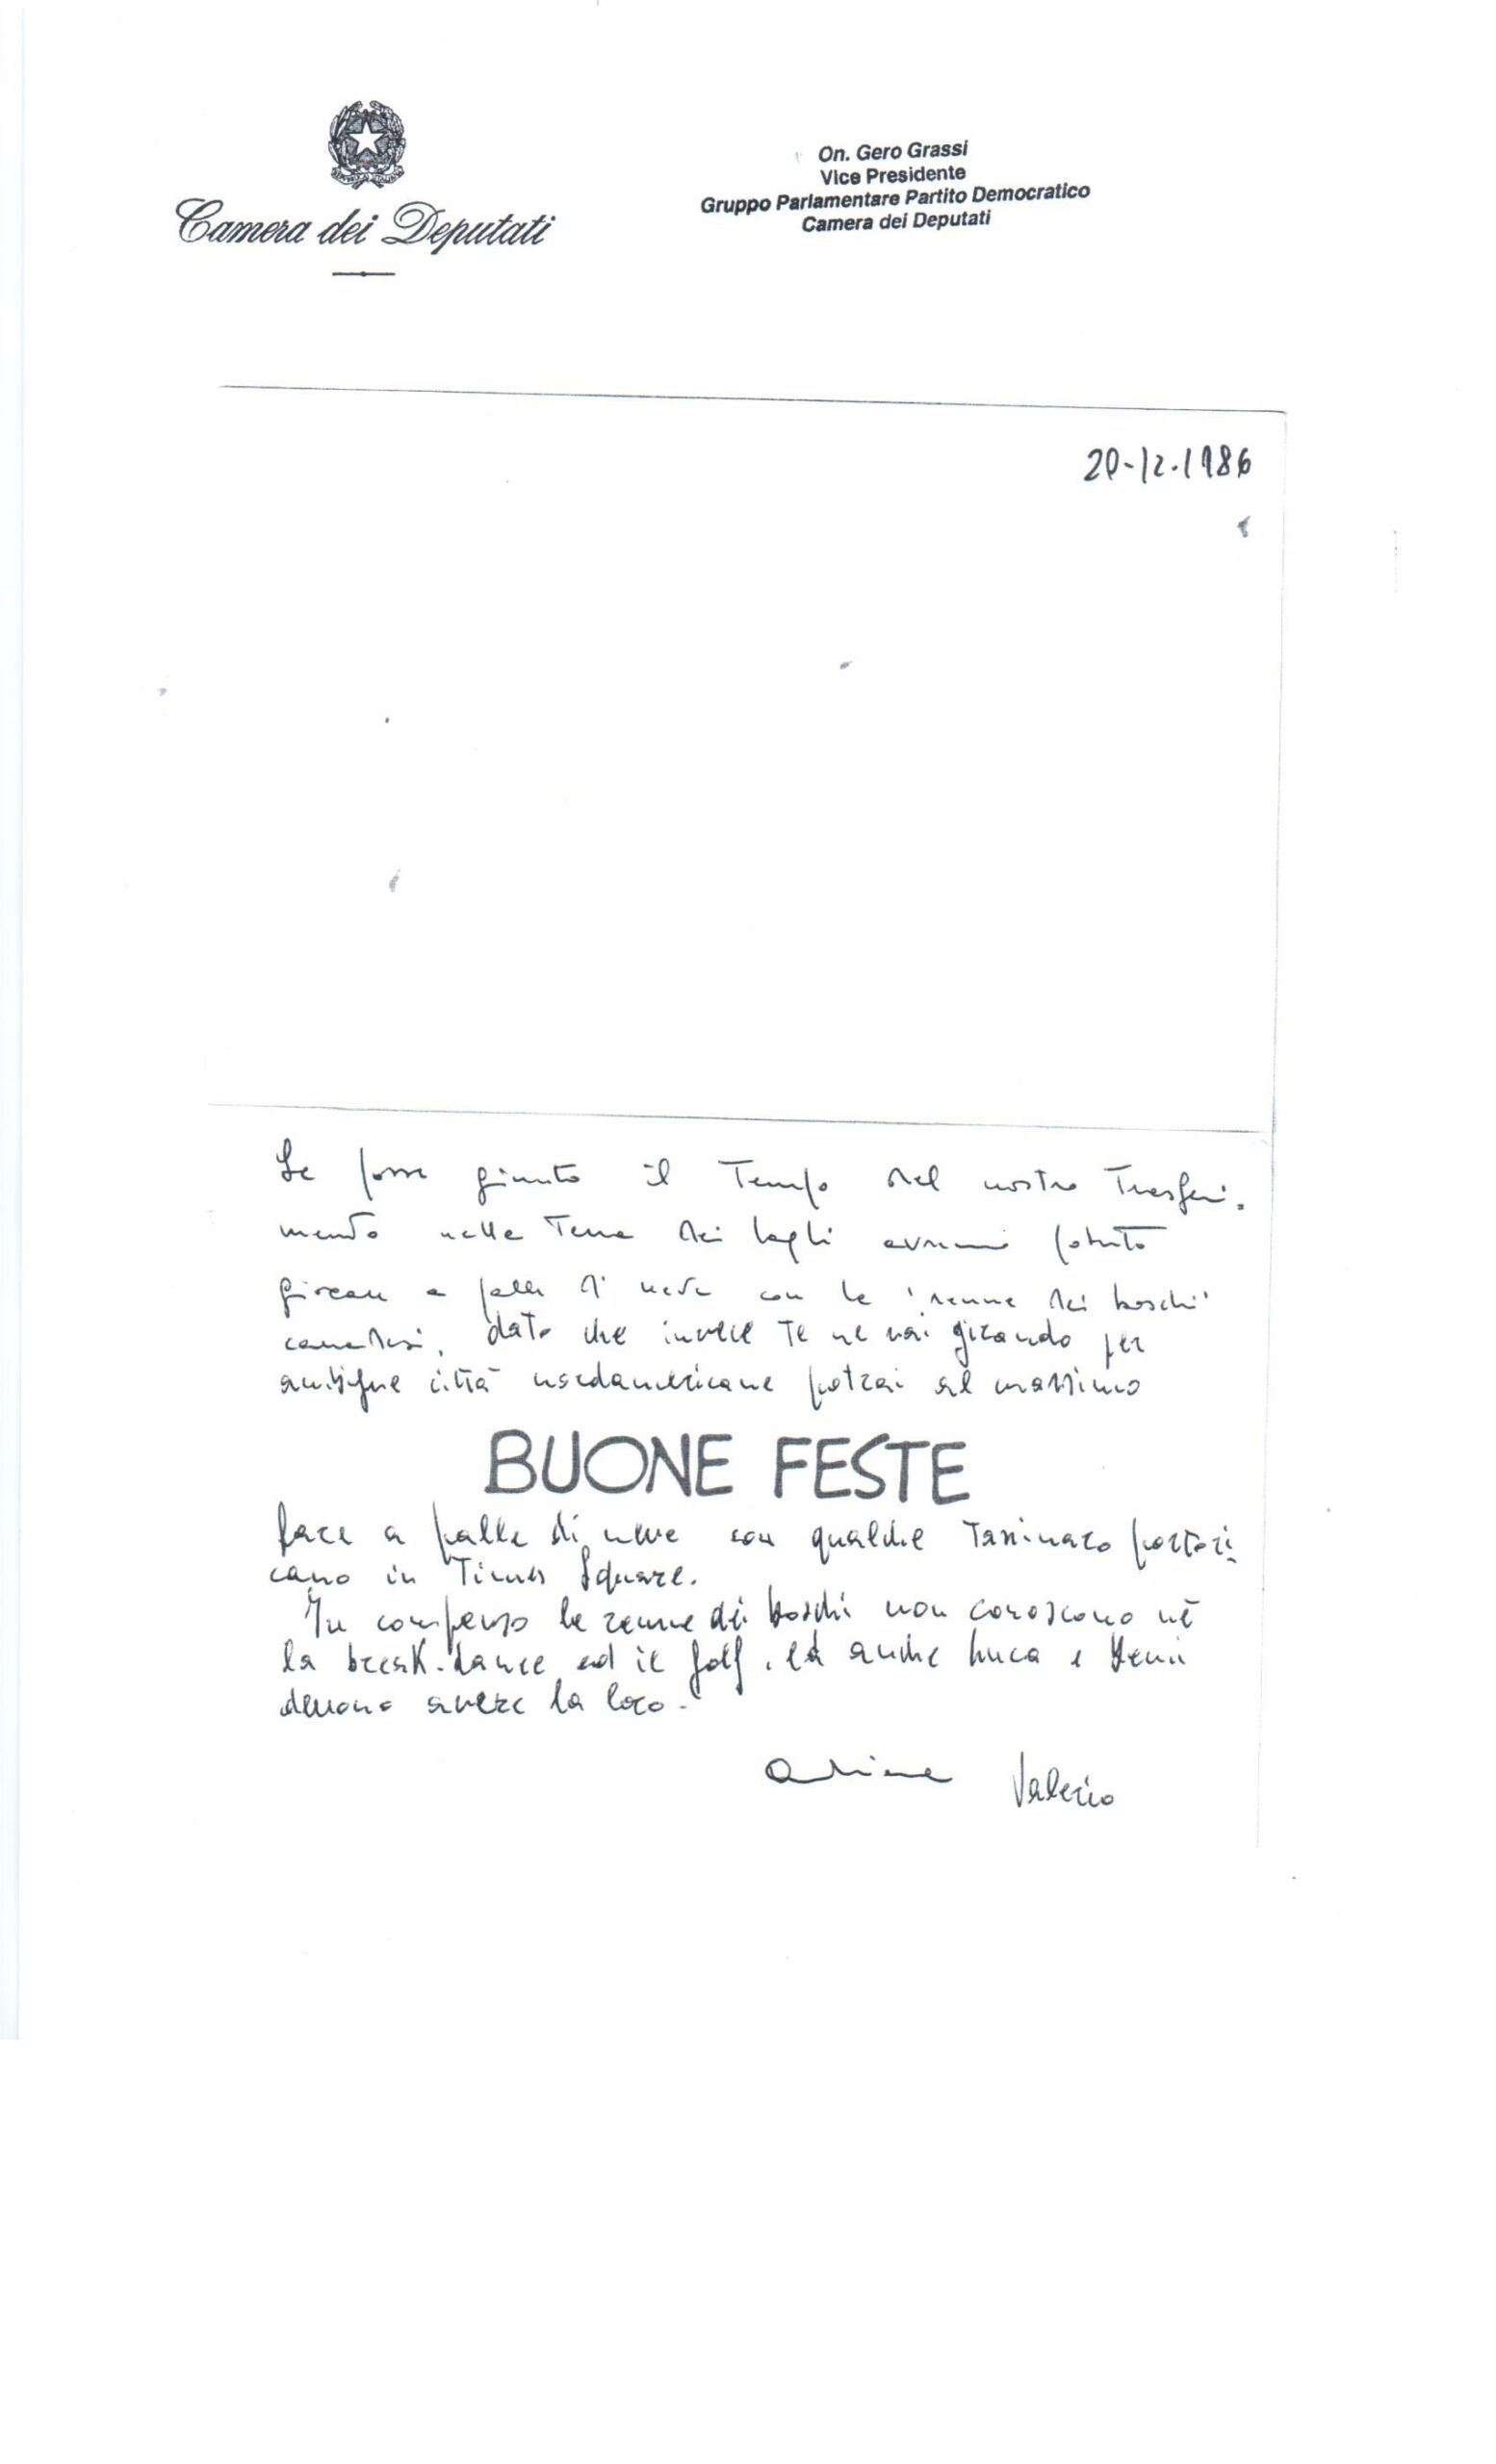 Camera dei Deputati
On. Gero Grassi
Vice Presidente
Gruppo Parlamentare Partito Democratico
Camera dei Deputati
20-12-1986
Se fosse giunto il tempo del nostro trasferi-
mento nelle Terre dei laghi avremmo potuto
giocare a palle di neve con le 'renne dei boschi'
canadesi, dato che invece te ne vai girando per
ambigue città nordamericane potrai al massimo
BUONE FESTE
fare a palle di neve con qualche tassinaro portori-
cano in Times Square.
In compenso le renne dei boschi non conoscono nè
la break-dance ed il golf, ed anche Luca e
devono avere la loro.
Valerio